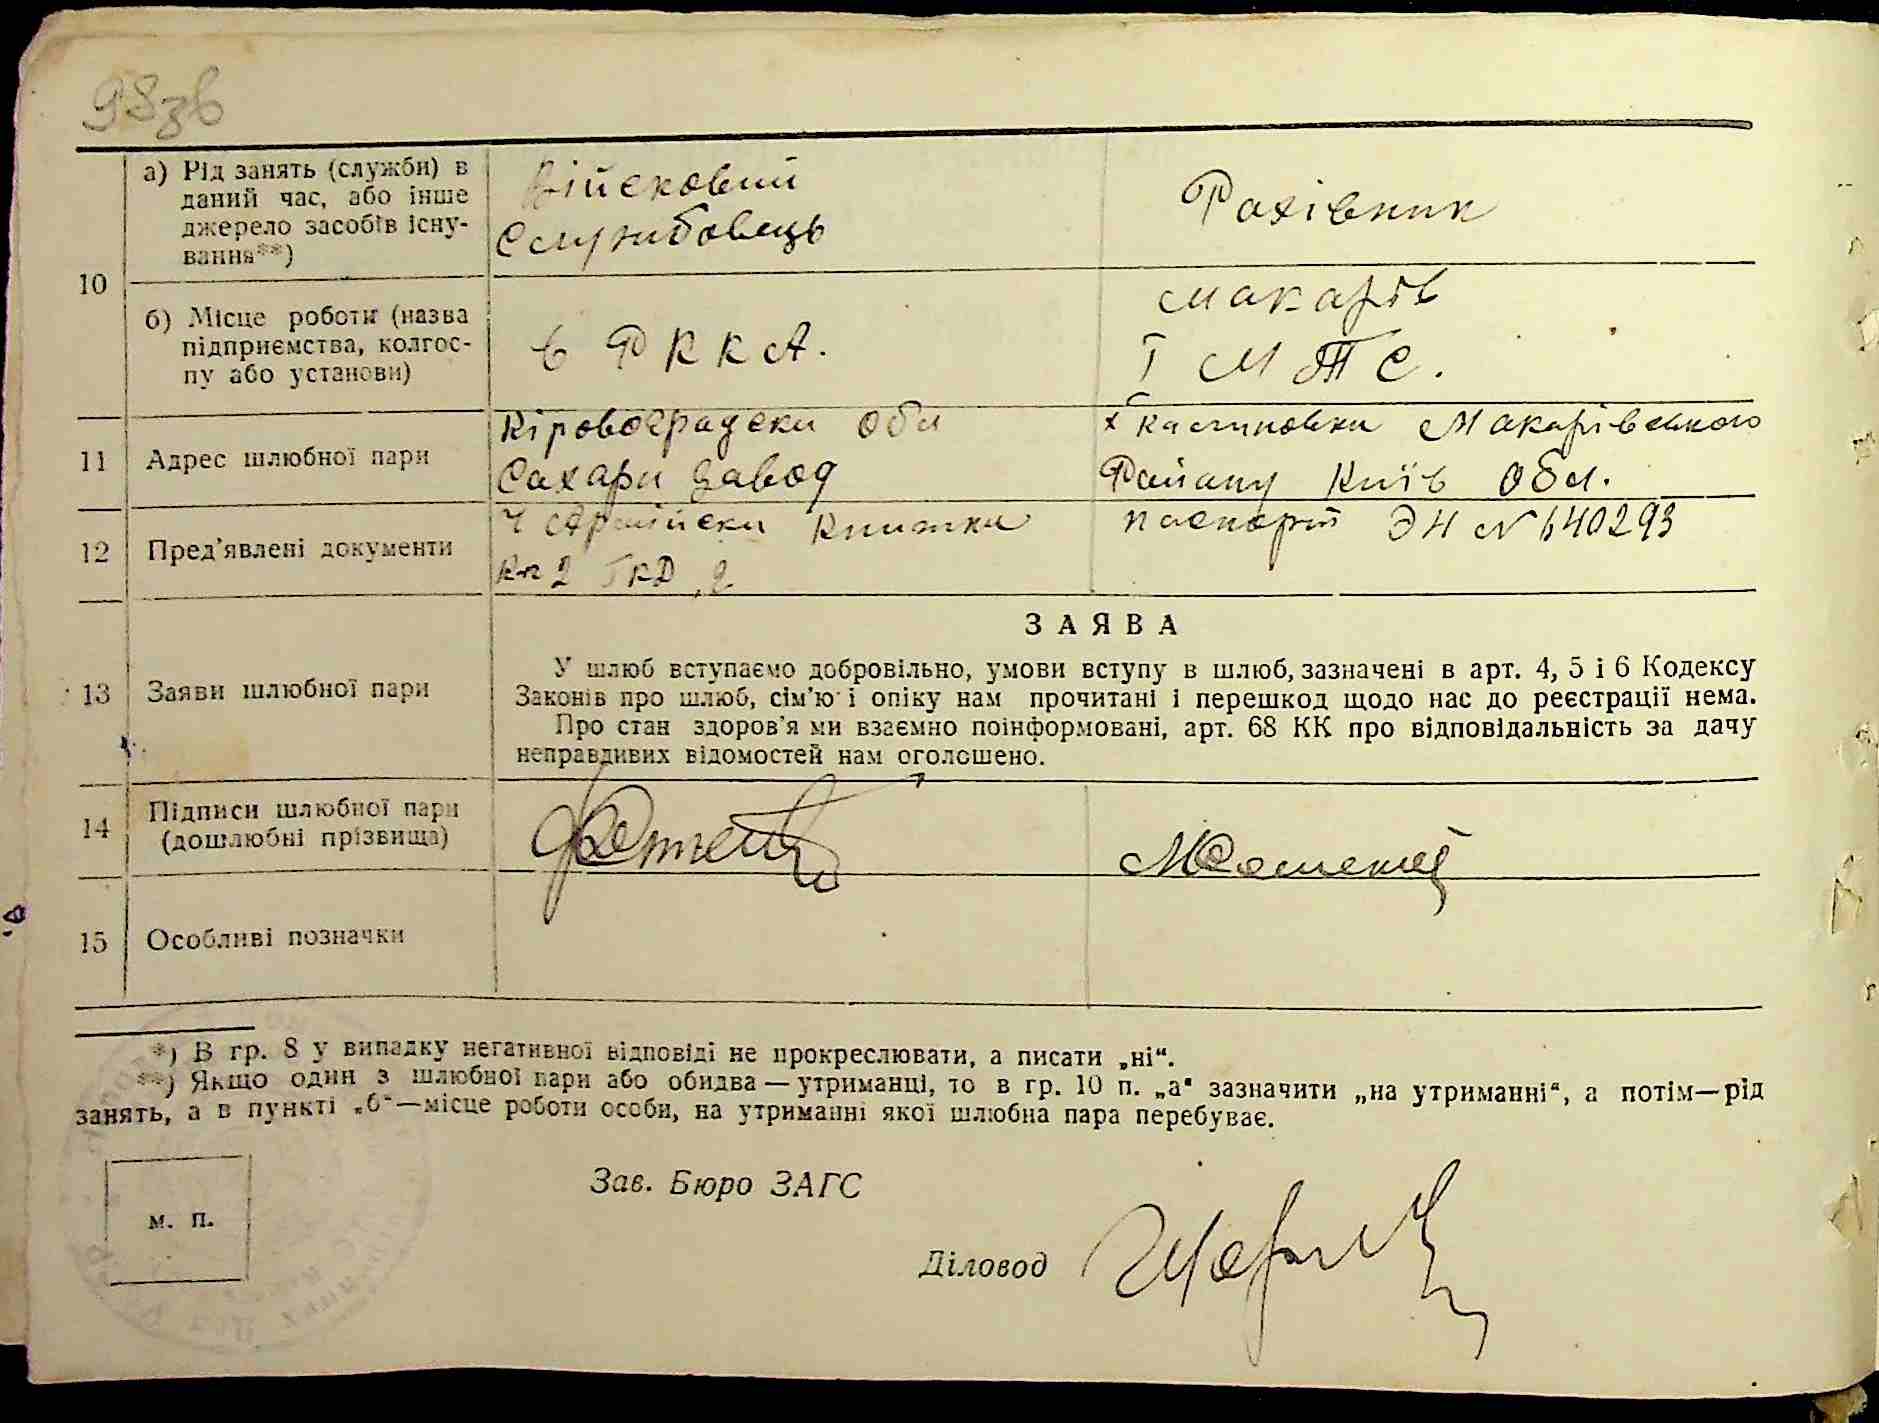 98зв
10
а) Рід занять (служби) в
даний час, або інше
джерело засобів існу-
вання**)
Війсковий
Службовець
Рахівник
б) Місце роботи (назва
підприємства, колгос-
пу або установи)
в РККА.
Макарів
МТС.
11
Адрес шлюбної пари
Кіровоградска Обл
Сахарн завод
х Калиновка Макарівського
Району Київ Обл.
12
Пред'явлені документи
Ч Армійска Книжка
паспорт ЭН № 640293
13
Заяви шлюбної пари
ЗАЯВА
У шлюб вступаємо добровільно, умови вступу в шлюб, зазначені в арт. 4, 5 і 6 Кодексу
Законів про шлюб, сім'ю і опіку нам прочитані і перешкод щодо нас до реєстрації нема.
Про стан здоров'я ми взаємно поінформовані, арт. 68 КК про відповідальність за дачу
неправдивих відомостей нам оголошено.
14
Підписи шлюбної пари
(дошлюбні прізвища)
15
Особливі позначки
*) В гр. 8 у випадку негативної відповіді не прокреслювати, а писати „ні“.
**) Якщо один з шлюбної пари або обидва — утриманці, то в гр. 10 п. „а“ зазначити „на утриманні“, а потім—рід
занять, а в пункті „б“—місце роботи особи, на утриманні якої шлюбна пара перебуває.
м. п.
Зав. Бюро ЗАГС
Діловод